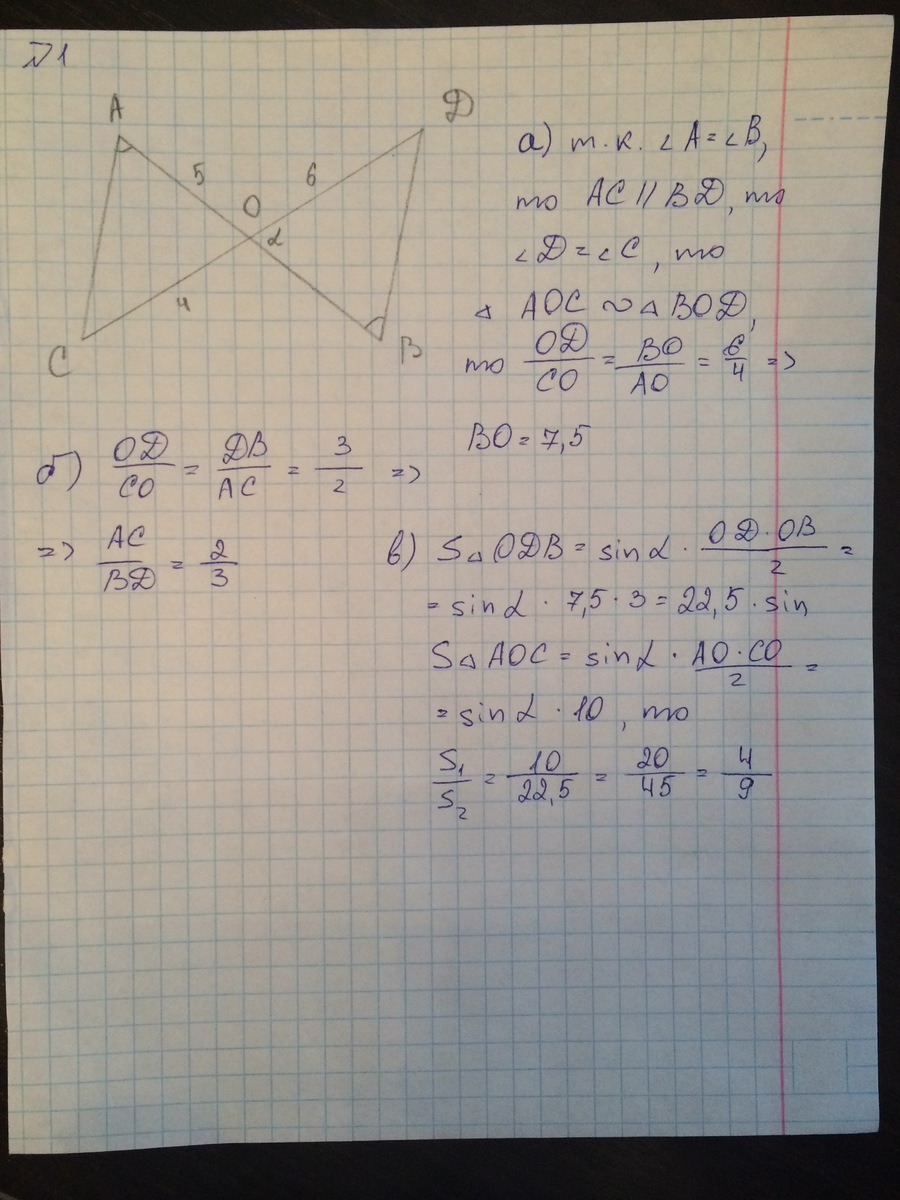 №1
A
D
5
6
O
α
4
C
B
а) т.к. ∠A=∠B,
то AC // BD, то
∠D=∠C, то
△ AOC ~ △ BOD,
то OD/CO = BO/AO = 6/4 =>
BO = 7,5
б) OD/CO = DB/AC = 3/2 =>
=> AC/BD = 2/3
в) S△ODB = sin α · OD·OB/2 =
= sin α · 7,5 · 3 = 22,5 · sin
S△AOC = sin α · AO·CO/2 =
= sin α · 10 , то
S₁/S₂ = 10/22,5 = 20/45 = 4/9